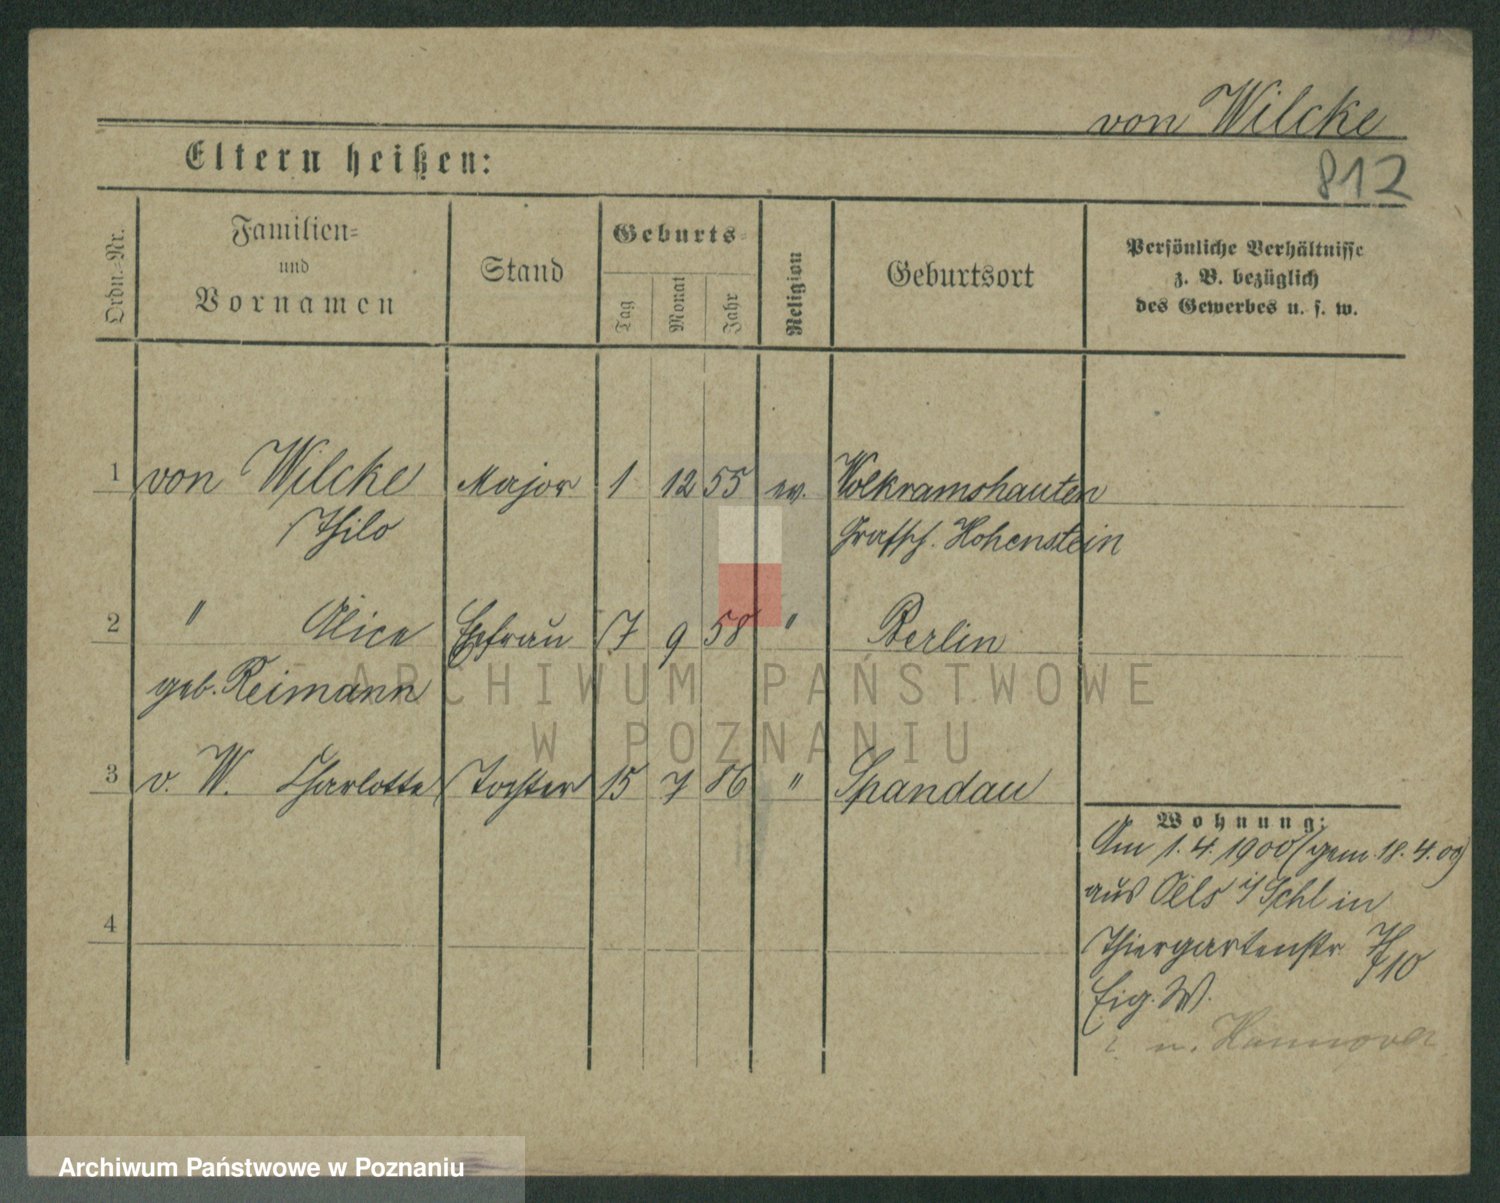 von Wilcke
Eltern heißen:
812
Ordn.-Nr.
Familien-
und
Vornamen
Stand
Geburts-
Tag
Monat
Jahr
Religion
Geburtsort
Persönliche Verhältnisse
z. B. bezüglich
des Gewerbes u. s. w.
1 von Wilcke Major 1 12 55 ev. Wolkramshausen
Thilo Grafsch. Hohenstein
2 " Alice Ehefrau 17 9 58 " Berlin
geb. Reimann
3 v. W. Charlotte Tochter 15 7 86 " Spandau
4
Wohnung:
Am 1.4.1900 (gem. 18.4.00)
aus Oels i/Schl in
Thiergartenstr.
Eig. W.
n. Hannover
ARCHIWUM PAŃSTWOWE
W POZNANIU
Archiwum Państwowe w Poznaniu